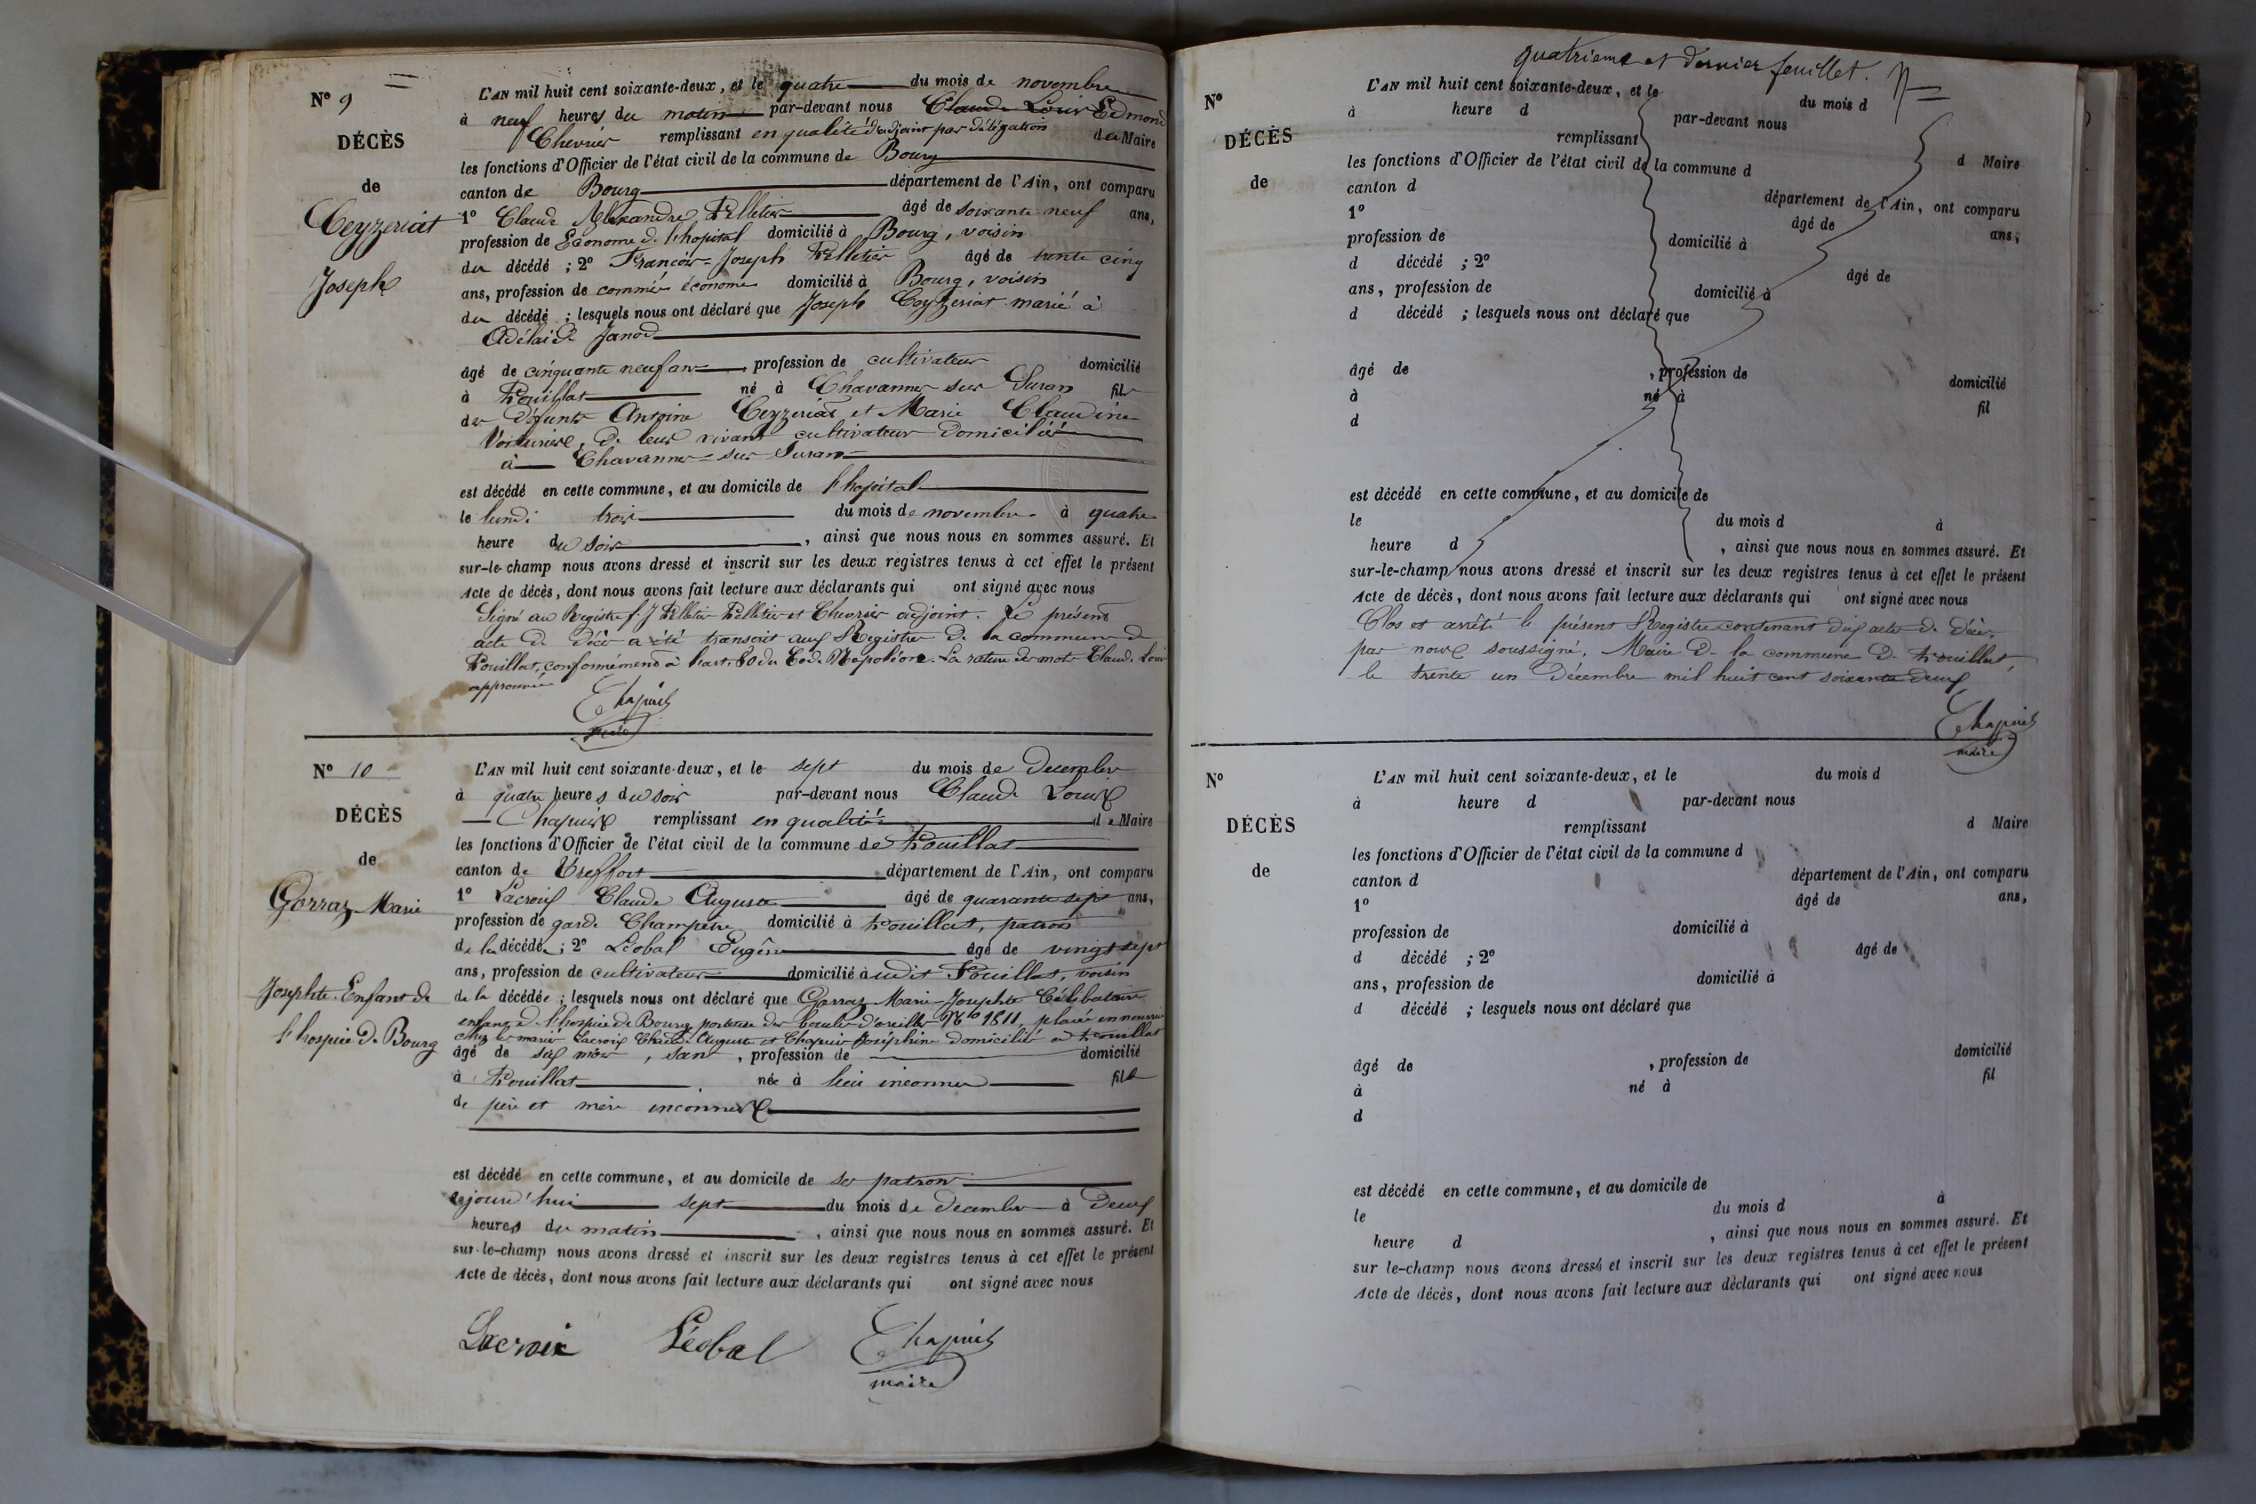 N° 9
DÉCÈS
de
Ceyzeriat
Joseph
L'AN mil huit cent soixante-deux, et le quatre du mois de novembre
à neuf heures du matin par-devant nous Claude Louis Edmond
Chevrier remplissant en qualité d'adjoint par délégation du Maire
les fonctions d'Officier de l'état civil de la commune de Bourg
canton de Bourg département de l'Ain, ont comparu
1° Claude Alexandre Pelletier âgé de soixante neuf ans,
profession de Econome de l'hopital domicilié à Bourg, voisin
du décédé ; 2° François-Joseph Pelletier âgé de trente cinq
ans, profession de commis économe domicilié à Bourg, voisin
du décédé ; lesquels nous ont déclaré que Joseph Ceyzeriat marié à
Adélaïde Janod
âgé de cinquante neuf ans, profession de cultivateur domicilié
à Pouillat né à Chavannes sur Suran fils
des défunts Antoine Ceyzeriat et Marie Claudine
de leur vivant cultivateur domicilié
à Chavannes-sur Suran
est décédé en cette commune, et au domicile de l'hopital
le lundi trois du mois de novembre à quatre
heure du soir, ainsi que nous nous en sommes assuré. Et
sur-le-champ nous avons dressé et inscrit sur les deux registres tenus à cet effet le présent
Acte de décès, dont nous avons fait lecture aux déclarants qui ont signé avec nous
Signé au Registre f. J Pelletier Pelletier et Chevrier adjoint. Le présent
acte de décès a été transcrit aux Registres de la commune de
Pouillat, conformément à l'art. 80 du Code Napoléon. La rature des mots Claude Louis
approuvée
Chapuis
maire
N° 10
DÉCÈS
de
Gorraz Marie
Josephte Enfant de
l'hospice de Bourg
L'AN mil huit cent soixante-deux, et le sept du mois de Decembre
à quatre heures du soir par-devant nous Claude Louis
Chapuis remplissant en qualité de Maire
les fonctions d'Officier de l'état civil de la commune de Pouillat
canton de Treffort département de l'Ain, ont comparu
1° Lacroix Claude Auguste âgé de quarante sept ans,
profession de garde Champetre domicilié à Pouillat, patron
de la décédée ; 2° Léobal Eugène âgé de vingt sept
ans, profession de cultivateur domicilié à udit Pouillat, voisin
de la décédée ; lesquels nous ont déclaré que Gorraz Marie-Josephte Célibataire
enfant de l'hospice de Bourg porteuse des boucles d'oreilles N° 1811, placée en nourrice
chez les mariés Lacroix Claude Auguste et Chapuis Joséphine domiciliés à Pouillat
âgé de six mois, sans, profession de domicilié
à Pouillat, née à lieu inconnu fille
de père et mère inconnus
est décédé en cette commune, et au domicile de ses patrons
aujourd'hui sept du mois de decembre à Deux
heures du matin, ainsi que nous nous en sommes assuré. Et
sur-le-champ nous avons dressé et inscrit sur les deux registres tenus à cet effet le présent
Acte de décès, dont nous avons fait lecture aux déclarants qui ont signé avec nous
Lacroix Léobal Chapuis
maire
quatrieme et dernier feuillet.
N°
DÉCÈS
de
L'AN mil huit cent soixante-deux, et le du mois d
à heure d par-devant nous
remplissant d Maire
les fonctions d'Officier de l'état civil de la commune d
canton d département de l'Ain, ont comparu
1° âgé de ans,
profession de domicilié à
d décédé ; 2° âgé de
ans, profession de domicilié à
d décédé ; lesquels nous ont déclaré que
âgé de , profession de domicilié
à né à fil
d
est décédé en cette commune, et au domicile de
le du mois d à
heure d , ainsi que nous nous en sommes assuré. Et
sur-le-champ nous avons dressé et inscrit sur les deux registres tenus à cet effet le présent
Acte de décès, dont nous avons fait lecture aux déclarants qui ont signé avec nous
Clos et arrêté le présent Registre contenant dix actes de décès,
par nous soussigné, Maire de la commune de Pouillat,
le trente un Décembre mil huit cent soixante deux
Chapuis
maire
N°
DÉCÈS
de
L'AN mil huit cent soixante-deux, et le du mois d
à heure d par-devant nous
remplissant d Maire
les fonctions d'Officier de l'état civil de la commune d
canton d département de l'Ain, ont comparu
1° âgé de ans,
profession de domicilié à
d décédé ; 2° âgé de
ans, profession de domicilié à
d décédé ; lesquels nous ont déclaré que
âgé de , profession de domicilié
à né à fil
d
est décédé en cette commune, et au domicile de
le du mois d à
heure d , ainsi que nous nous en sommes assuré. Et
sur le-champ nous avons dressé et inscrit sur les deux registres tenus à cet effet le présent
Acte de décès, dont nous avons fait lecture aux déclarants qui ont signé avec nous